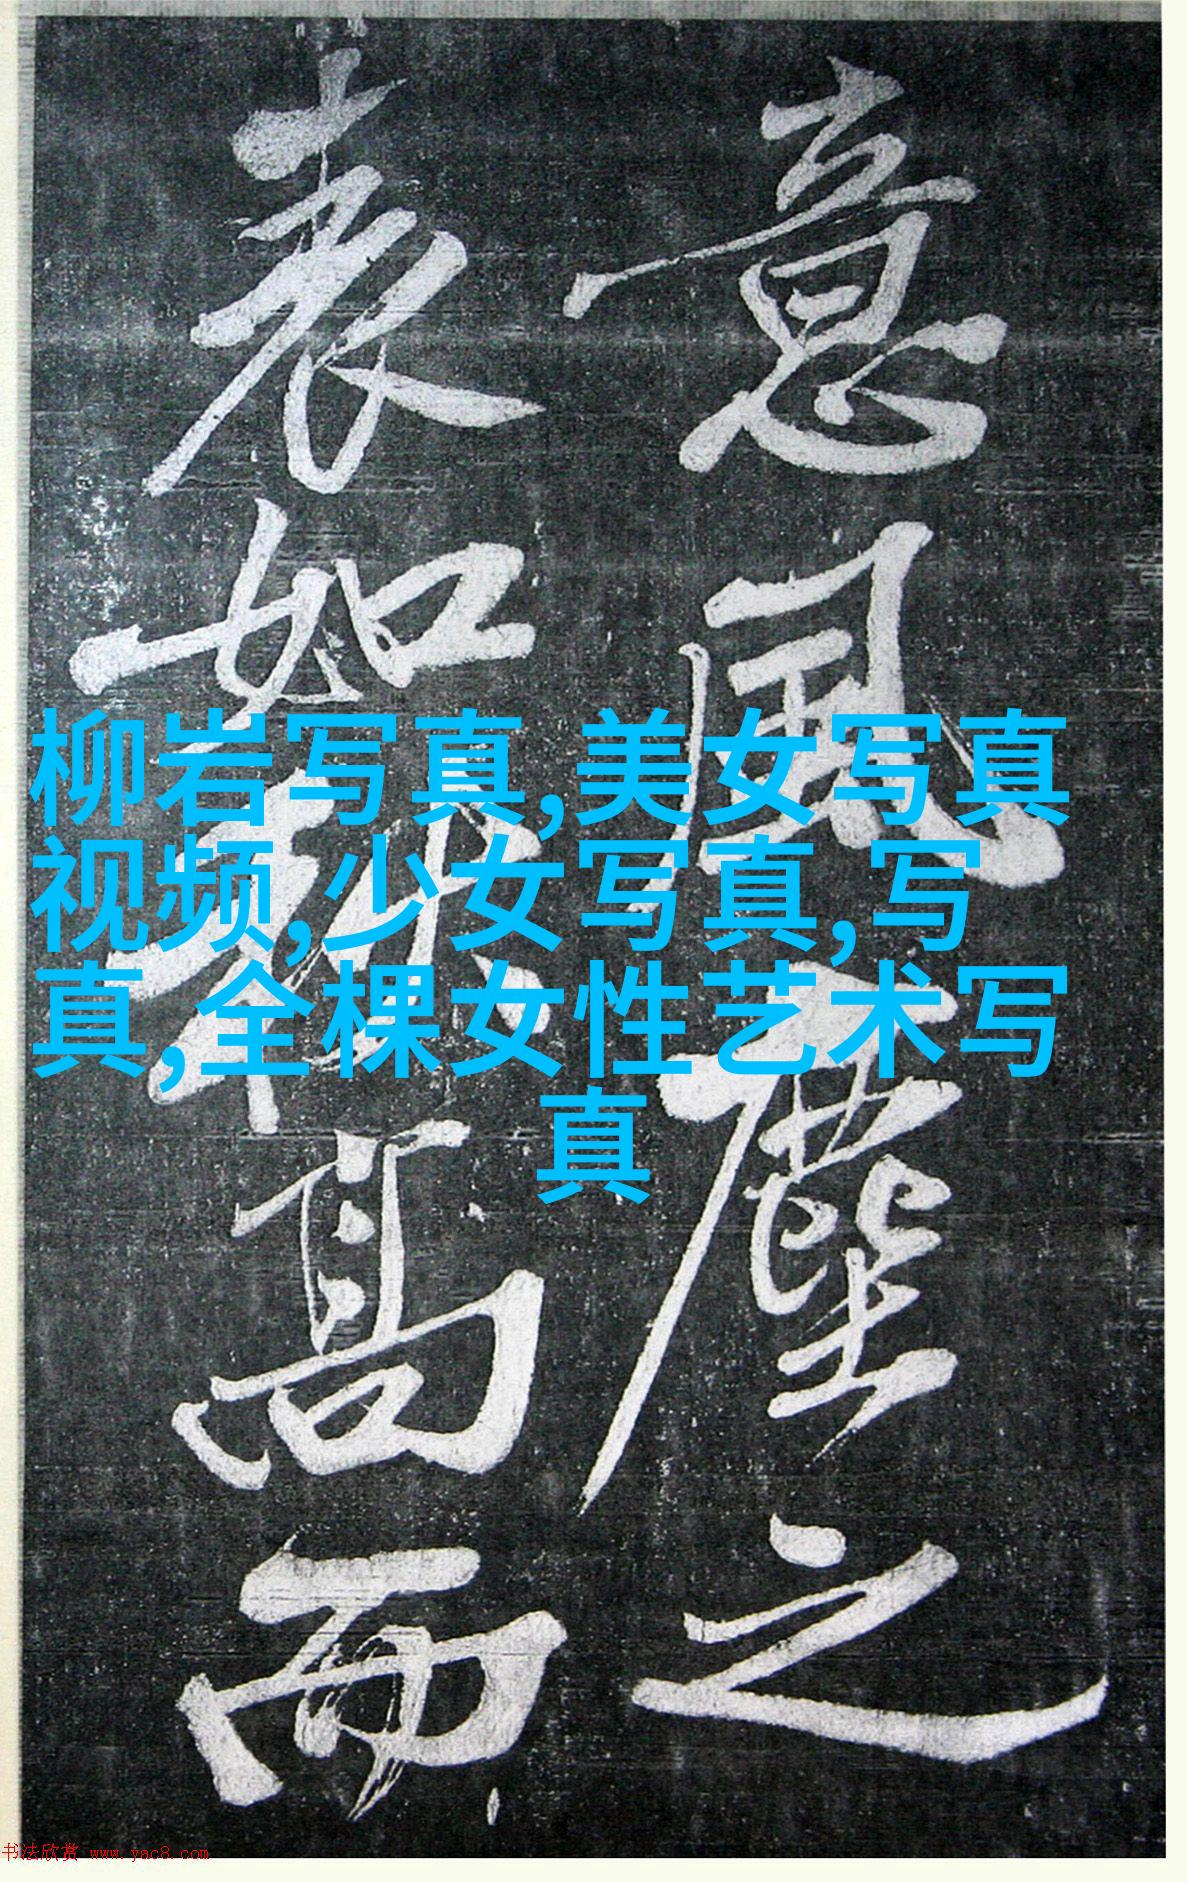 意風塵之
表如執高而
柳岩写真,美女写真
视频,少女写真,写
真,全棵女性艺术写
真
书法欣赏 www.yac8.com